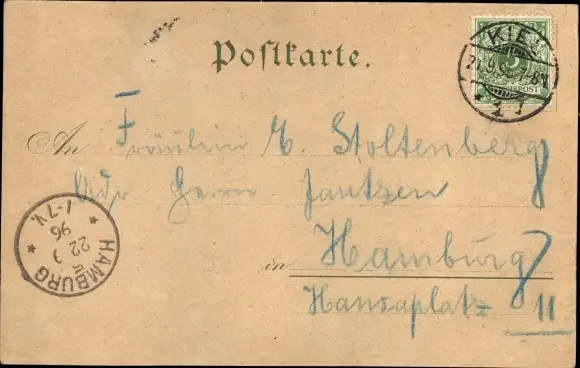 Postkarte.
KIEL
5
REICHSPOST
1
An Fräulein E. Stoltenberg
Adr Herrn Jantzen
in Hamburg
Hansaplatz 11
HAMBURG
22 9
96
1-7V.